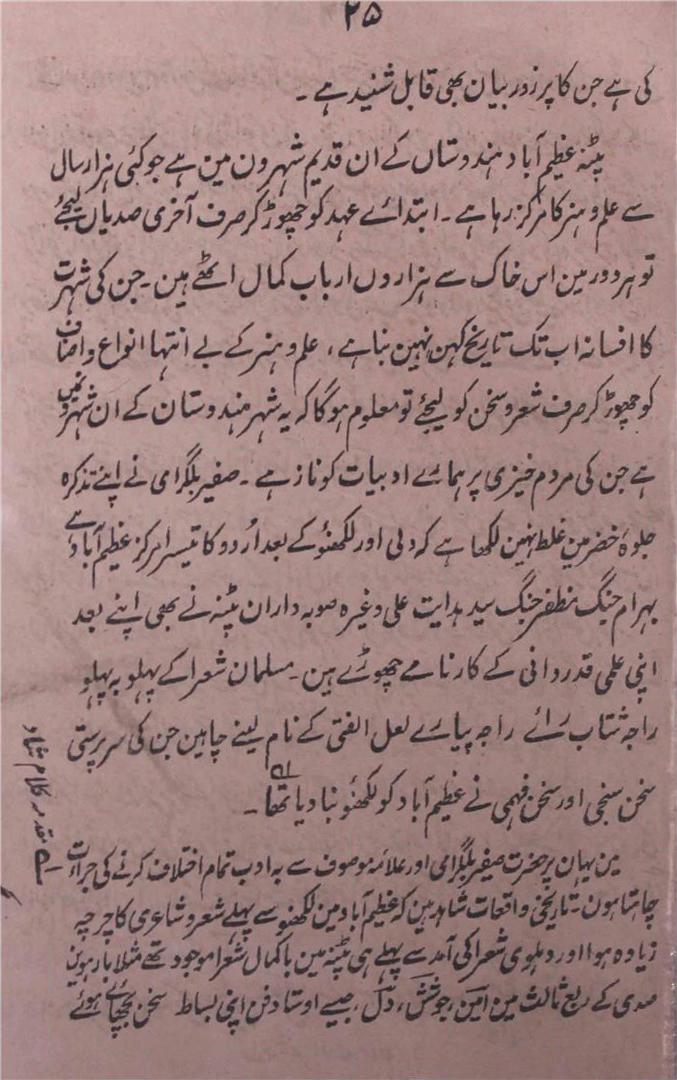 ۲۵
کی ہے جن کا پر زور بیان بھی قابل شنید ہے ۔
پٹنہ عظیم آباد ہندوستاں کے ان قدیم شہرون مین ہے جو کئی ہزار سال
سے علم و ہنر کا مرکز رہا ہے ۔ ابتدائے عہد کو چھوڑ کر صرف آخری صدیاں لیجئے
تو ہر دور مین اس خاک سے ہزاروں ارباب کمال اٹھے ہین ۔ جن کی شہرت
کا افسانہ اب تک تاریخ کہن نہین بنا ہے ، علم و ہنر کے بے انتہا انواع و اصناف
کو چھوڑ کر صرف شعر و سخن کو لیجئے تو معلوم ہوگا کہ یہ شہر ہندوستان کے ان شہرونمیں
ہے جن کی مردم خیزی پر ہمارے ادبیات کو ناز ہے ۔ صفیر بلگرامی نے اپنے تذکرہ
جلوۂ خضر مین غلط نہین لکھا ہے کہ دلی اور لکھنؤ کے بعد اُردو کا تیسرا مرکز عظیم آباد ہے
بہرام جنگ مظفر جنگ سید ہدایت علی وغیرہ صوبہ داران پٹنہ نے بھی اپنے بعد
اپنی علمی قدردانی کے کارنامے چھوڑے ہین ۔ مسلمان شعرا کے پہلو بہ پہلو
راجہ شتاب رائے راجہ پیارے لعل الفتی کے نام لینے چاہین جن کی سرپرستی
سخن سنجی اور سخن فہمی نے عظیم آباد کو لکھنؤ بنا دیا تھا ۔
مین یہان پر حضرت صفیر بلگرامی اور علامہ موصوف سے بہ ادب تمام اختلاف کرنے کی جرات
چاہتا ہون ۔ تاریخی واقعات شاہد ہین کہ عظیم آباد مین لکھنؤ سے پہلے شعر و شاعری کا چرچہ
زیادہ ہوا اور دہلوی شعرا کی آمد سے پہلے ہی پٹنہ مین باکمال شعرا موجود تھے مثلاً بارہوین
صدی کے ربع ثالث مین امین ، جوشش ، دل ، جیسے اوستاد فن اپنی بساط سخن بچھائے ہوئے
مقدمہ کلام شاد